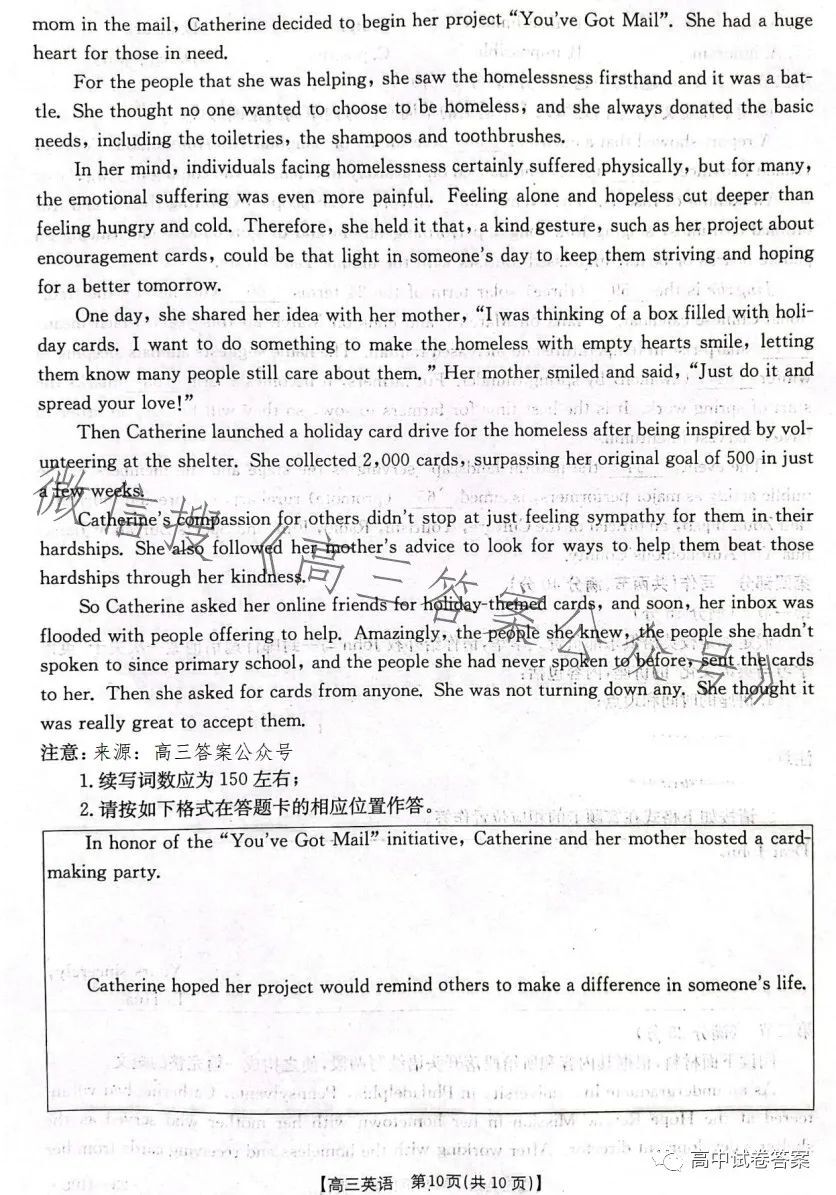 mom in the mail, Catherine decided to begin her project “You’ve Got Mail”. She had a huge
heart for those in need.
For the people that she was helping, she saw the homelessness firsthand and it was a bat-
tle. She thought no one wanted to choose to be homeless, and she always donated the basic
needs, including the toiletries, the shampoos and toothbrushes.
In her mind, individuals facing homelessness certainly suffered physically, but for many,
the emotional suffering was even more painful. Feeling alone and hopeless cut deeper than
feeling hungry and cold. Therefore, she held it that, a kind gesture, such as her project about
encouragement cards, could be that light in someone’s day to keep them striving and hoping
for a better tomorrow.
One day, she shared her idea with her mother, “I was thinking of a box filled with holi-
day cards. I want to do something to make the homeless with empty hearts smile, letting
them know many people still care about them.” Her mother smiled and said, “Just do it and
spread your love!”
Then Catherine launched a holiday card drive for the homeless after being inspired by vol-
unteering at the shelter. She collected 2,000 cards, surpassing her original goal of 500 in just
a few weeks.
Catherine’s compassion for others didn’t stop at just feeling sympathy for them in their
hardships. She also followed her mother’s advice to look for ways to help them beat those
hardships through her kindness.
So Catherine asked her online friends for holiday-themed cards, and soon, her inbox was
flooded with people offering to help. Amazingly, the people she knew, the people she hadn’t
spoken to since primary school, and the people she had never spoken to before, sent the cards
to her. Then she asked for cards from anyone. She was not turning down any. She thought it
was really great to accept them.
注意:来源：高三答案公众号
1.续写词数应为 150 左右;
2.请按如下格式在答题卡的相应位置作答。
In honor of the “You’ve Got Mail” initiative, Catherine and her mother hosted a card-
making party.
Catherine hoped her project would remind others to make a difference in someone’s life.
【高三英语 第10页(共 10 页)】
微信搜《高三答案公众号》
高中试卷答案